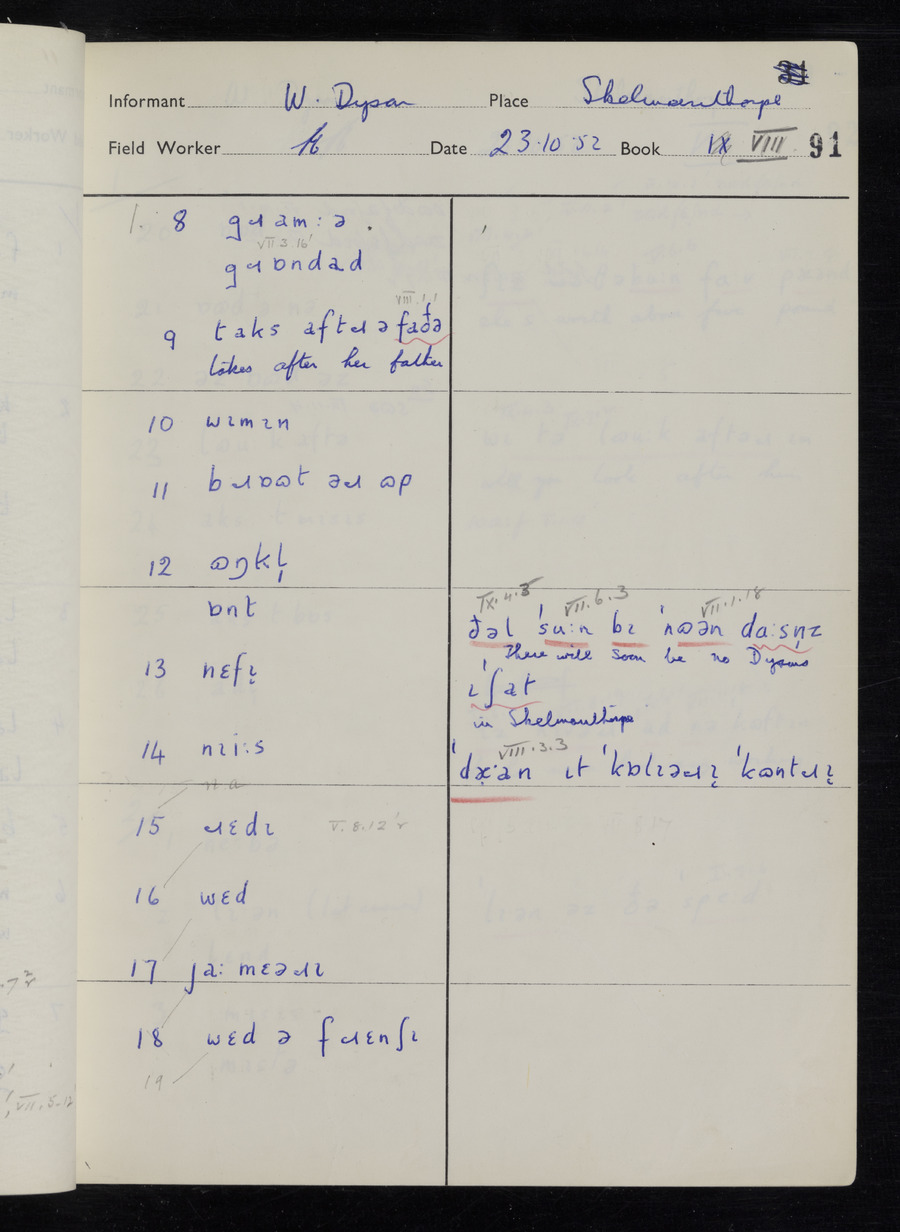 Informant W. Dyson Place Skelmanthorpe
Field Worker Date 23·10·52 Book IX VIII 91
1. 8 gɹamːə
VII 3 16'
gɹɒndad
VIII.1.1
9 taks aftɹ ə faðə
takes after her father
10 wɪmɪn
11 bɹɒʊt əɹ ʊp
12 ʊŋkl̩
ɒnt
13 nɛfɪ̨
14 nɪiːs
n a
15 ɹɛdɪ V. 8.12 'r
16 wɛd
17 ʃaː mɛəɹɪ
18 wɛd ə fɹɛnʃɪ
19
IX.4.3 VII.6.3 VII.1.18
ðəl ˈsuːn bɪ ˈnʊən daːsn̩z
There will soon be no Dysons
ɪ ˈʃat
in Skelmanthorpe
VIII.3.3
ˈdʒːan ɪt ˈkɒlɪəɹɪ̨ ˈkʊntɹɪ̨
VII.5-12